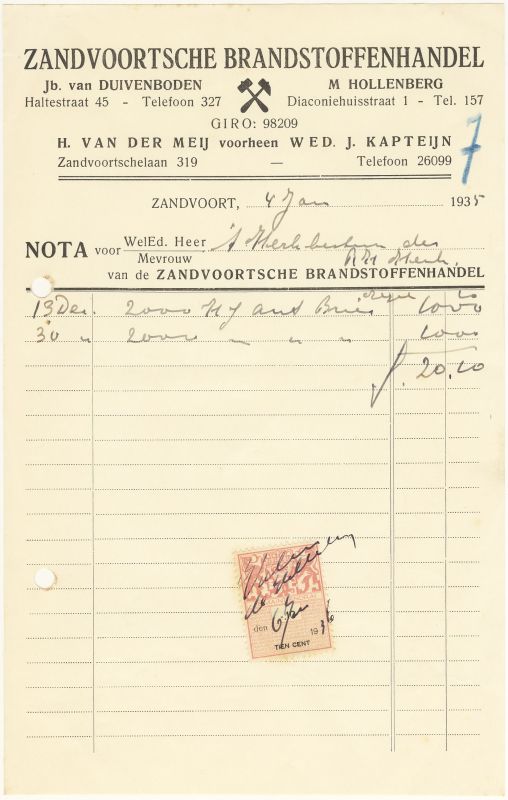 ZANDVOORTSCHE BRANDSTOFFENHANDEL
Jb. van DUIVENBODEN M HOLLENBERG
Haltestraat 45 - Telefoon 327 Diaconiehuisstraat 1 - Tel. 157
GIRO: 98209
H. VAN DER MEIJ voorheen WED. J. KAPTEIJN
Zandvoortschelaan 319 — Telefoon 26099
7
ZANDVOORT, 4 Jan 1935
NOTA voor WelEd. Heer Mevrouw 't Kerkbestuur der RK Kerk.
van de ZANDVOORTSCHE BRANDSTOFFENHANDEL
13 Dec. 2000 HJ ant 10
30 " 2000 " " " 1000
f. 20.10
den 6 Jan 1936
TIEN CENT